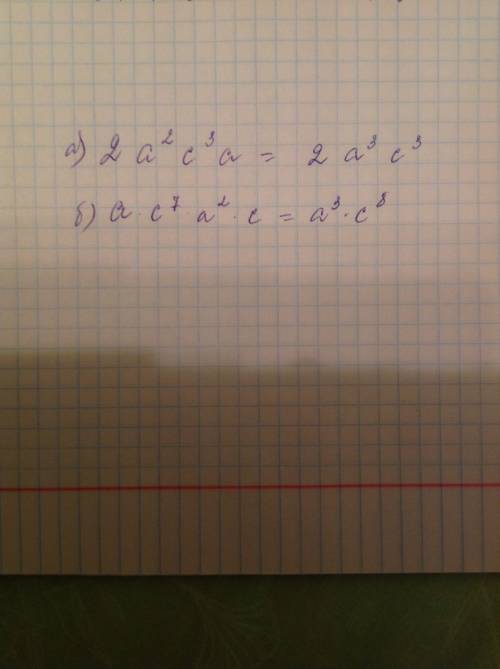 а) 2 a² c³ a = 2 a³ c³
б) a · c⁷ · a² · c = a³ · c⁸